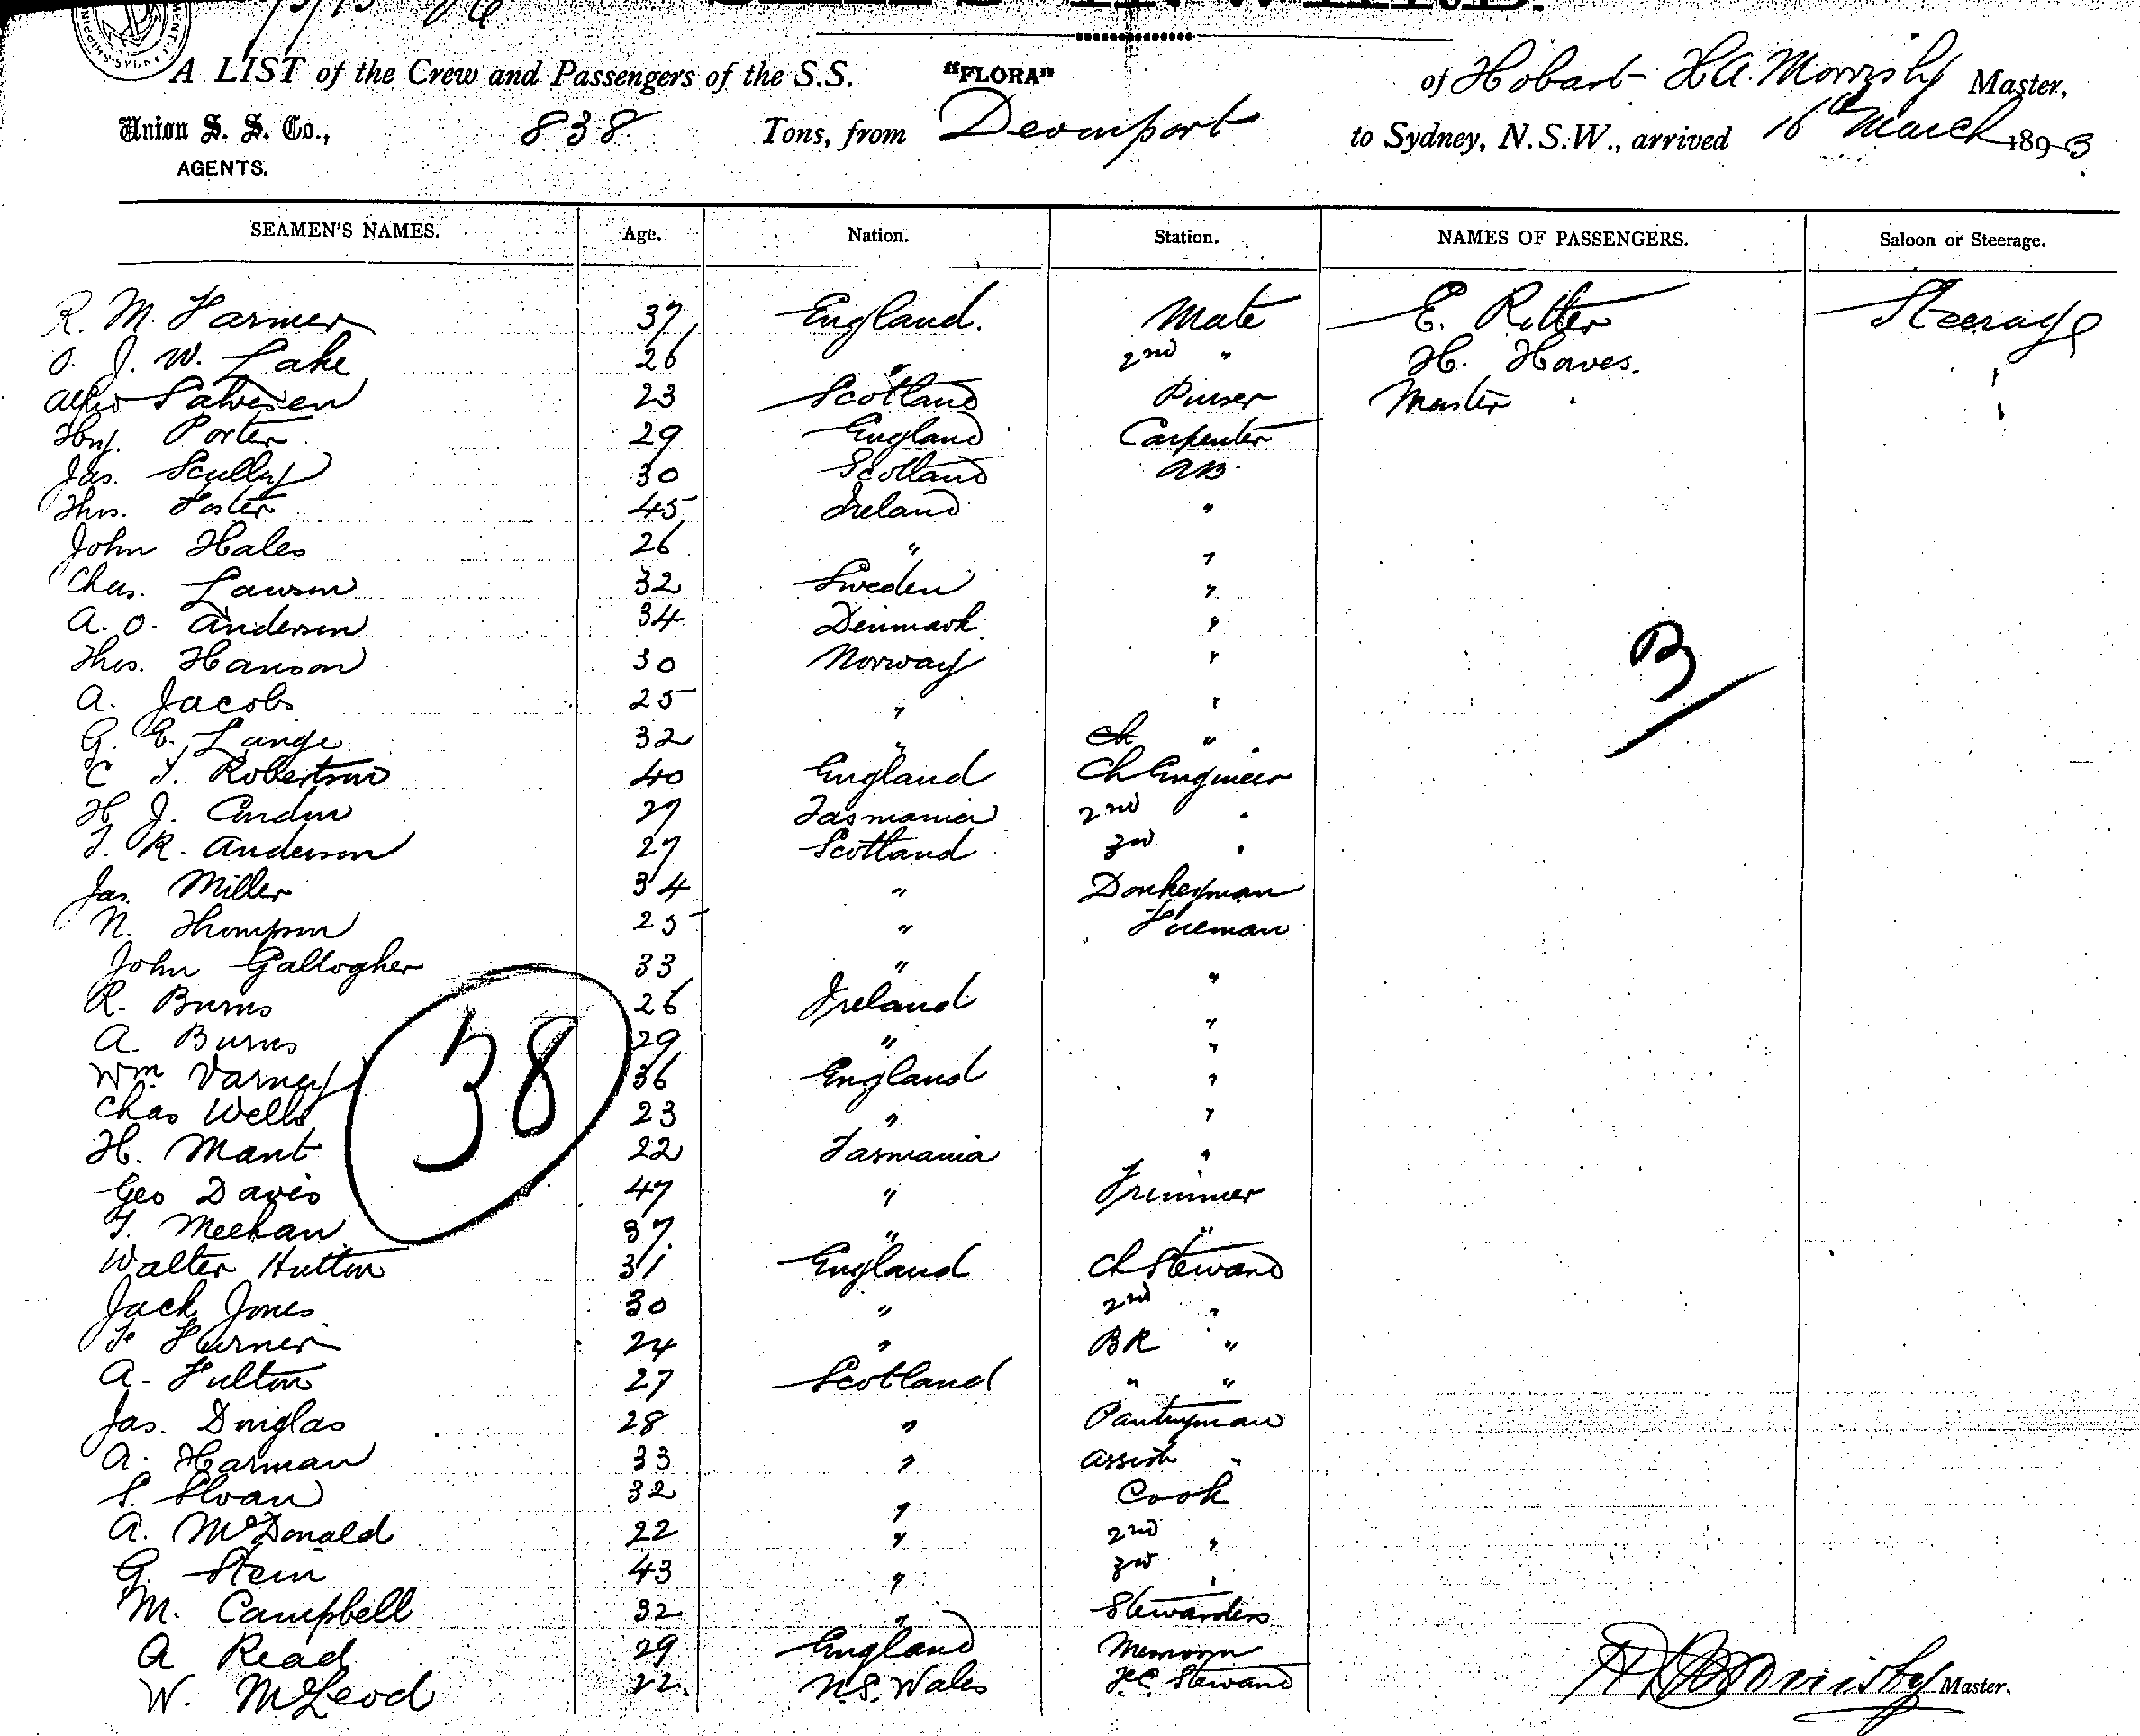 A LIST of the Crew and Passengers of the S.S. "FLORA" of Hobart H.A. Morrisby Master,
Union S. S. Co., 838 Tons, from Devonport to Sydney, N.S.W., arrived 16th March 1893
AGENTS.
SEAMEN'S NAMES. Age. Nation. Station. NAMES OF PASSENGERS. Saloon or Steerage.
R. M. Farmer 37 England. Mate E. Ritter Steerage
J. W. Lake 26 " 2nd " H. Hawes. "
Salvesen 23 Scotland Purser Master "
Hny. Porter 29 England Carpenter
Jas. Scully 30 Scotland AB
Thos. Foster 45 Ireland "
John Hales 26 " "
Chas. Lawson 32 Sweden "
A. O. Andersen 34 Denmark "
Thos. Hanson 30 Norway "
A. Jacobs 25 " "
G. E. Lange 32 " "
C T. Robertson 40 England Ch Engineer
H J. 27 Tasmania 2nd "
T. R. Anderson 27 Scotland 3rd "
Jas. Miller 34 " Donkeyman
N. Thompson 25 " Fireman
John Gallogher 33 " "
R. Burns 26 Ireland "
A. Burns 29 " "
Wm. Varney 36 England "
Chas Wells 23 " "
H. Mant 22 Tasmania "
Geo Davis 47 " Trimmer
T. Meehan 37 " "
Walter Hutton 31 England Ch Steward
Jack Jones 30 " 2nd "
F. Turner 24 " BR "
A. Fulton 27 Scotland " "
Jas. Douglas 28 " Pantryman
A. Harman 33 " Assist "
S. Sloan 32 " Cook
A. McDonald 22 " 2nd "
G. Stein 43 " 3rd "
M. Campbell 32 " Stewardess
A Read 29 England Messroom
W. McLeod 22. N.S. Wales F.C. Steward
38
B
Morrisby Master.